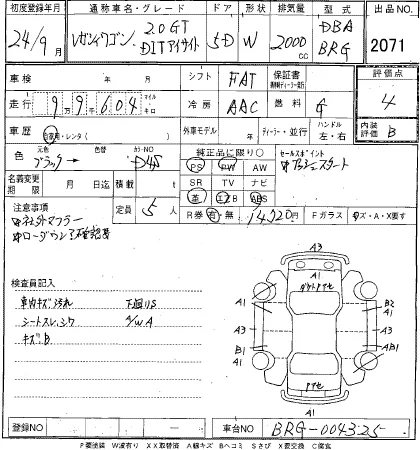 初度登録年月 通称車名・グレード ドア 形状 排気量 型式 出品NO
24/9月 レガシィワゴン 2.0GT DITアイサイト 5D W 2000cc DBA BRG 2071
車検 年 月 シフト FAT 保証書 評価点
走行 9万9千604 マイル・キロ 冷房 AAC 燃料 G 4
車歴 自家用・レンタ 外車モデル 年 ディーラー・並行 ハンドル 左・右 内装評価 B
色 ブラック→ 色替 カラーNO D4S 純正品に限り○ セールスポイント
PS PW AW *プッシュスタート
名義変更期限 月 日迄 積載 t SR TV ナビ
定員 5人 革 エアB ABS
R券 有・無 14920円 Fガラス キズ・A・X要す
注意事項
*社外マフラー
*ローダウン 不確認
検査員記入
車内キズ汚れ 下廻りS
シートスレ、シワ A/W A
キズB
A3
A1
ダクトアセ
A1 B2 A1
A3 A3
B1 AB1
A1 A1
Pアセ
A1
登録NO 車台NO BRG-004325
P要塗装 W波有り XX取替済 A線キズ Bヘコミ Sさび X要交換 C腐食